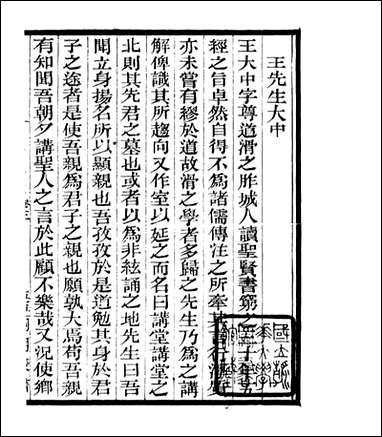 王先生大中
王大中字尊道滑之胙城人讀聖賢書窮之
經之旨卓然自得不為諸儒傳注之所牽其
亦未嘗有繆於道故滑之學者多歸之先生乃為之講
解俾識其所趨向又作室以延之而名曰講堂講堂之
北則其先君之墓也或者以為非絃誦之地先生曰吾
聞立身揚名所以顯親也吾孜孜於是道勉其身於君
子之途者是使吾親為君子之親也顧孰大焉苟吾親
有知聞吾朝夕講聖人之言於此顧不樂哉又況使鄉